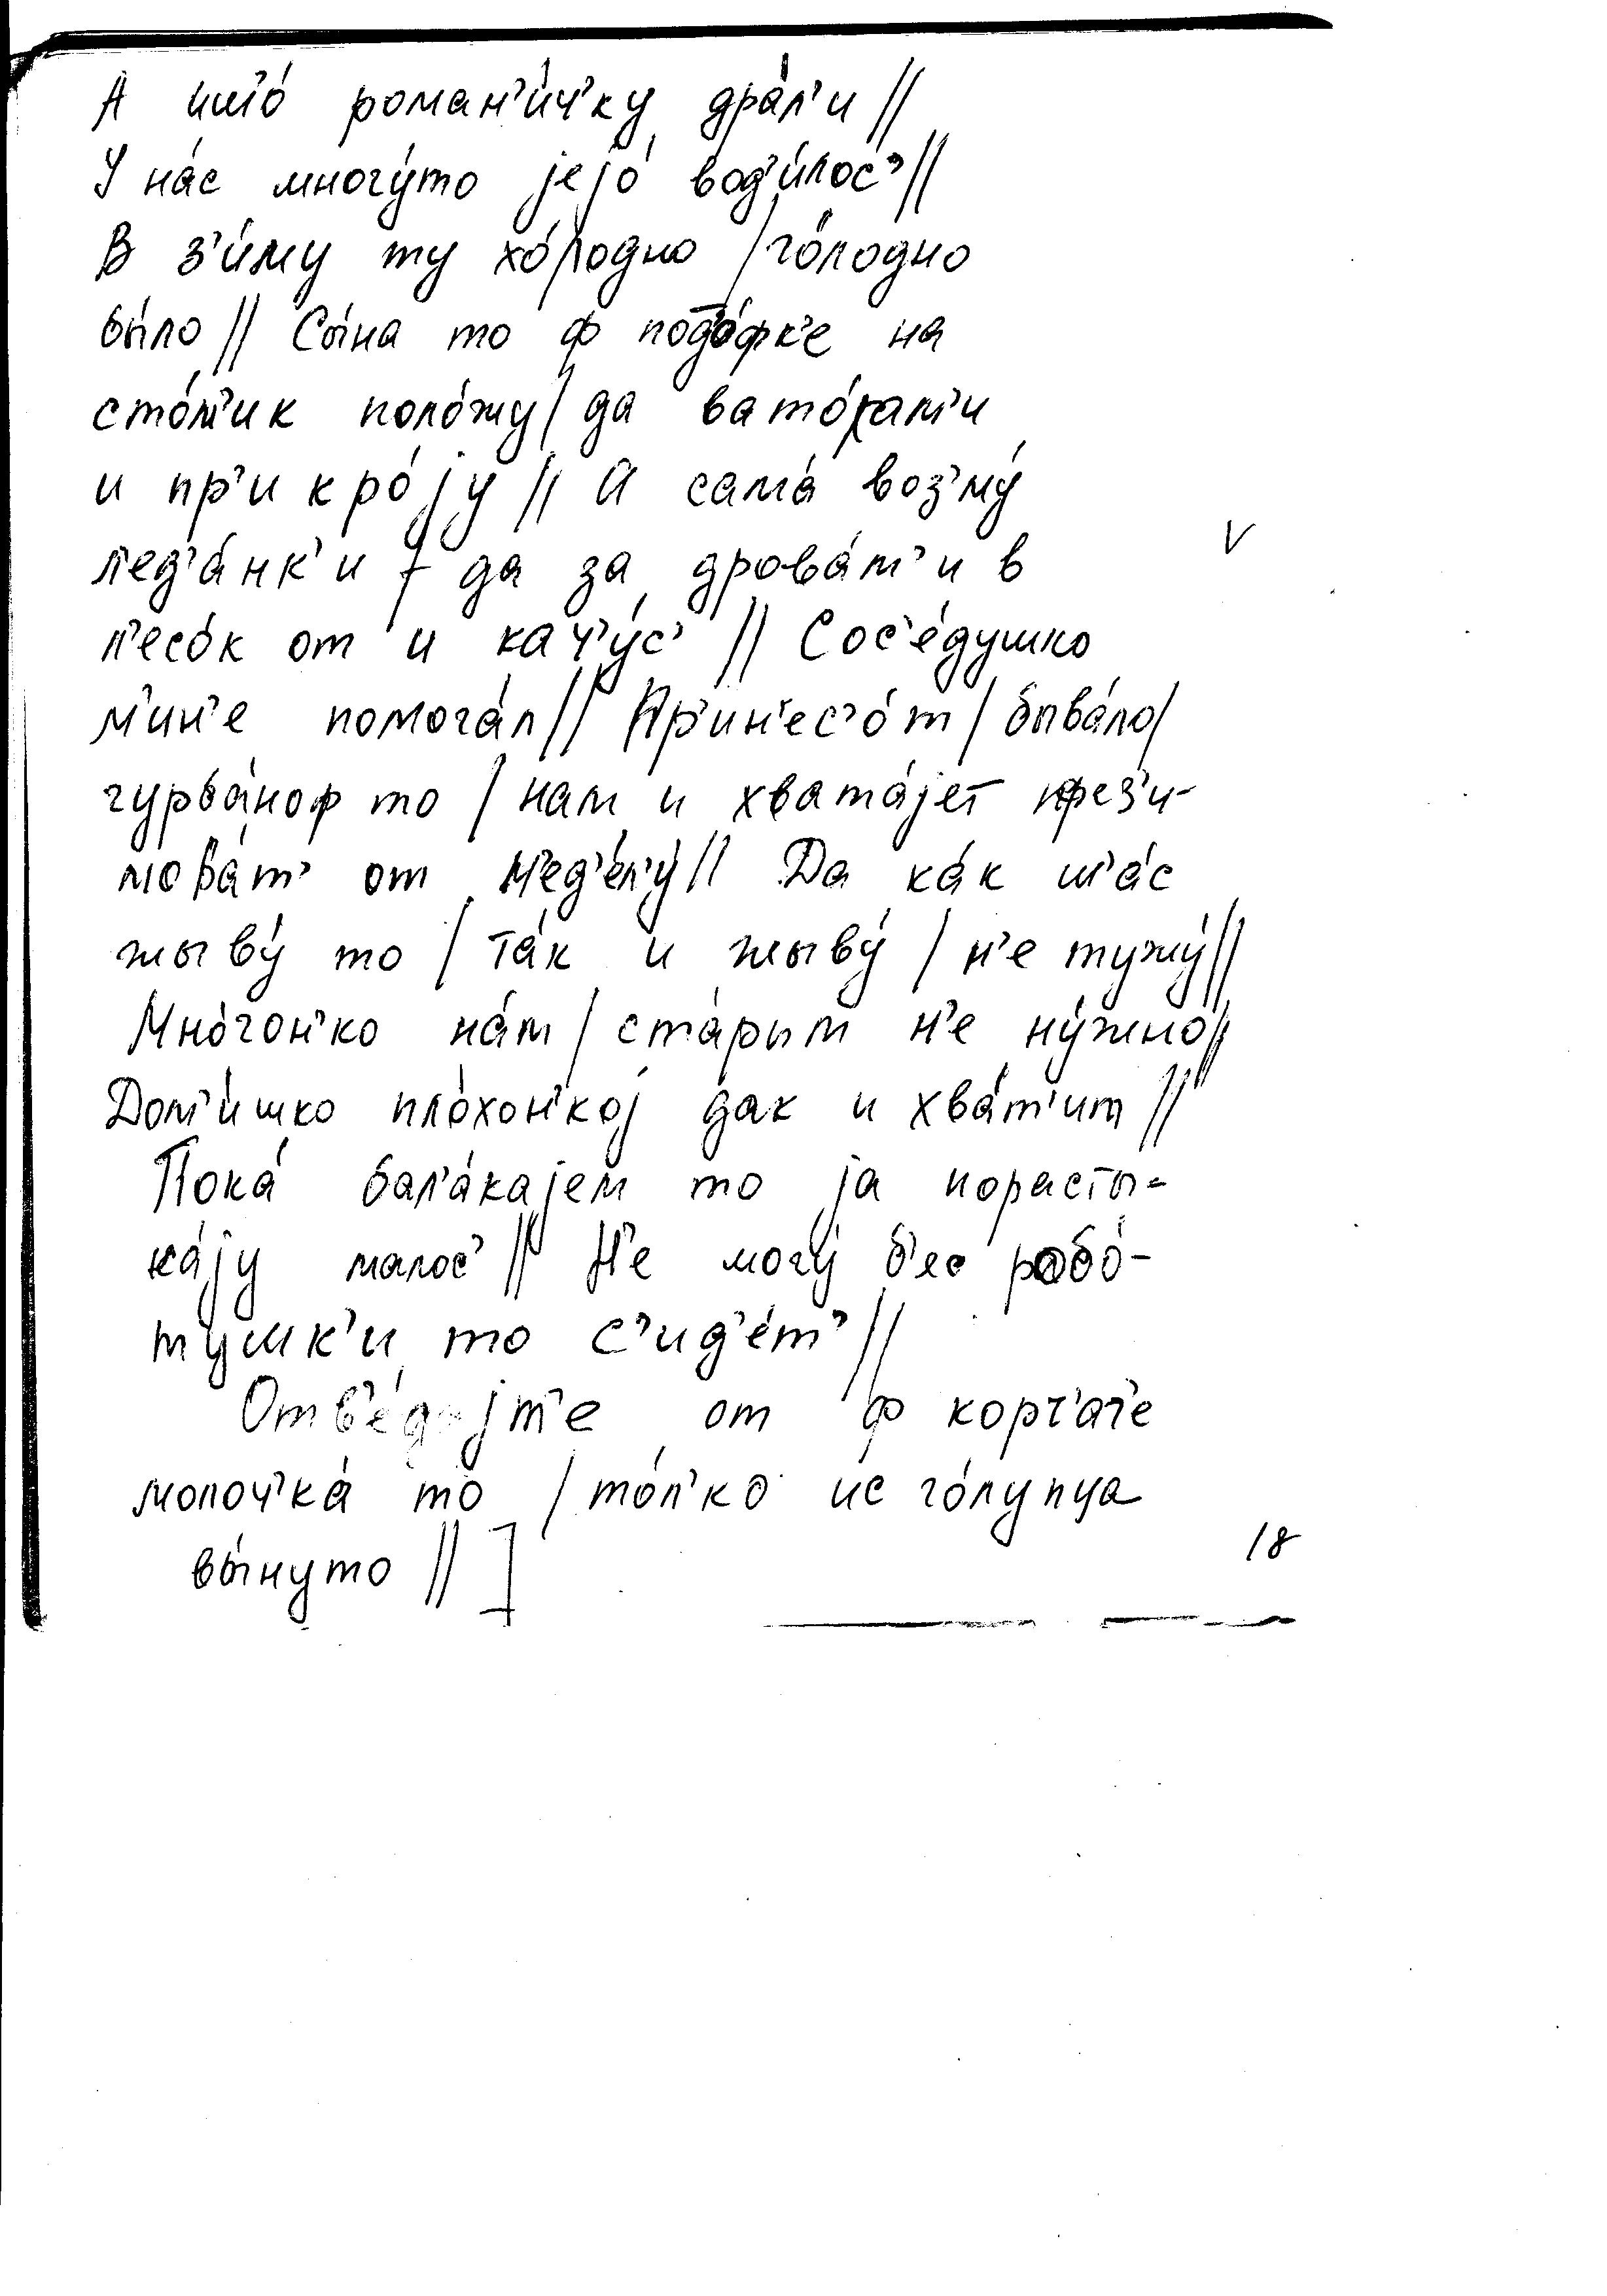 А ишʼо́ романʼи́чʼку дра́лʼи //
У на́с многу́то јејо́ водʼи́лосʼ //
В зʼи́му ту хо́лодно / го́лодно
бы́ло // Сы́на то ф подо́фкʼе на
сто́лʼик поло́жу / да вато́ламʼи
и прʼикро́јy // А сама́ возʼму́
ледʼа́нкʼи / да за дрова́мʼи в
лʼесо́к от и качʼу́сʼ // Сосʼе́душко
мʼинʼе помога́л // Прʼинʼесʼо́т / быва́ло /
гурба́ноф то / нам и хвата́јет презʼи-
мова́тʼ от нʼедʼе́лʼу // Да ка́к шʼа́с
жыву́ то / та́к и жыву́ / нʼе тужу́ //
Мно́гонʼко на́м / ста́рым нʼе ну́жно //
Домʼи́шко пло́хонʼкој дак и хва́тʼит //
Пока́ балʼа́кајем то ја порасты-
ка́ју малосʼ // Нʼе могу́ бʼес робо́-
тушкʼи то сʼидʼе́тʼ //
Отвʼе́дајтʼе от ф корчʼагʼе
молочʼка́ то / то́лʼко ис го́лупца
вы́нуто // ]
V
18